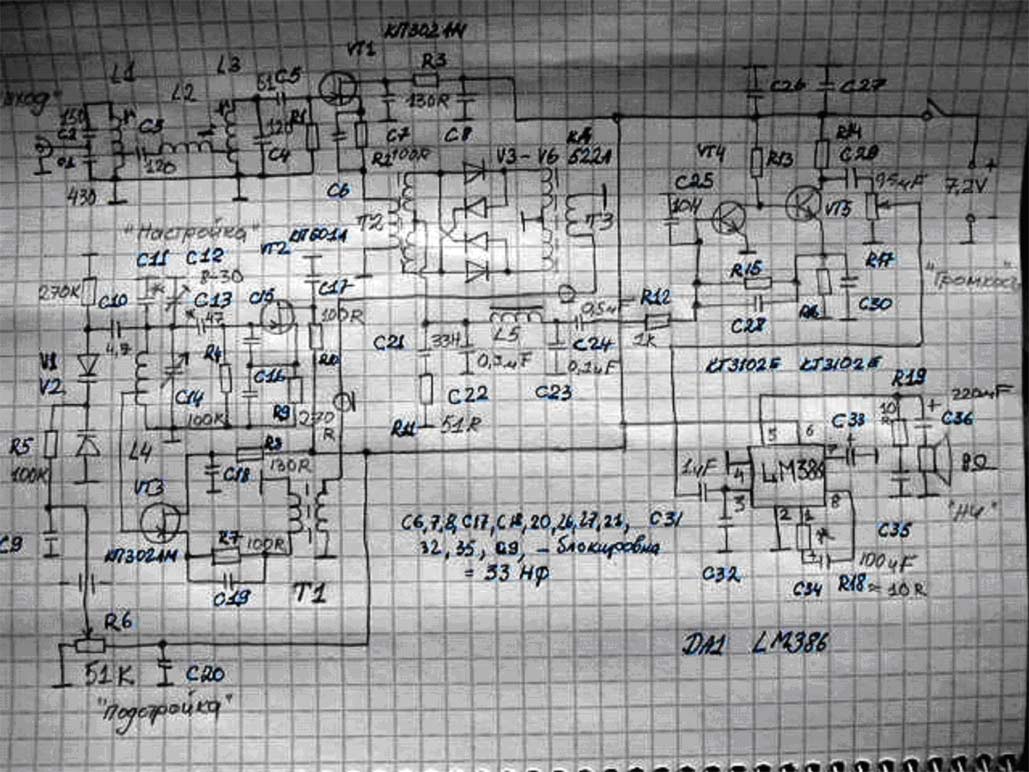 КП302АМ
VT1
L3
L1
R3
L2
C5
51
130R
C26
C27
150
C2
C3
120
R1
C7
C8
120
C4
R14
КД
522А
V3-V6
VT4
R13
C28
R2
100R
430
C6
C25
10Н
95мF
7,2V
VT5
T2
T3
"Настройка"
VT2
КП601А
C11
C12
8-30
R15
R17
"Громкос
270К
C10
C13
C15
C17
47
100R
R12
0,5м
R16
C30
C28
4,7
R4
R10
C21
33Н
L5
C24
1К
V1
V2
C16
0,1мF
0,1мF
КТ3102Б
КТ3102Б
C14
C22
C23
R19
100К
R9
270
R
R11
51R
10
R
220мF
C33
C36
R5
L4
R8
5
6
100К
C18
130R
1мF
4
LM386
7
8Ω
VT3
3
8
2
1
"НЧ"
C9
КП302АМ
R7
100R
C6,7,8,C17,C18,20,26,27,21, C31
32, 35, C9, - блокировка
= 33 НФ
C35
100мF
C19
T1
C32
C34
R18 ≈ 10R
R6
51К
C20
DA1 LM386
"Подстройка"